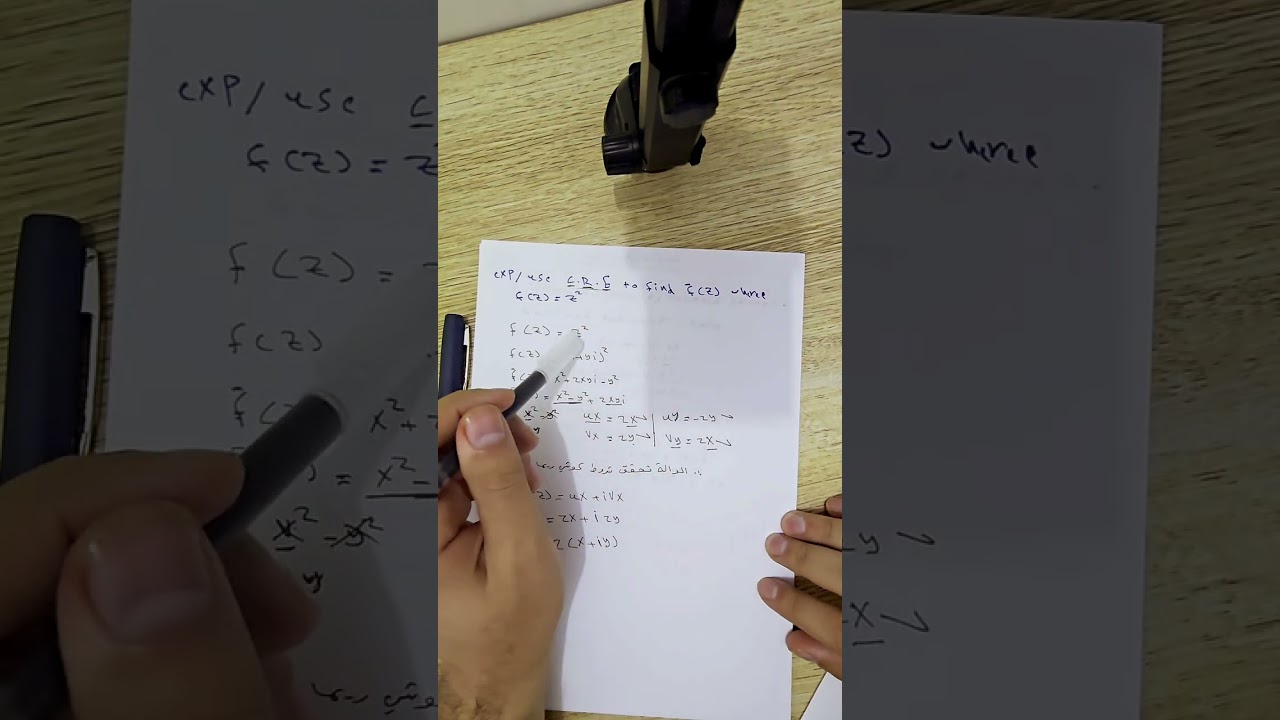 exp/ use C.R.E to find f(z) where
f(z) = z²
f(z) = z²
f(z) +yi)²
f( x² + 2xyi - y²
= x² - y² + 2xyi
x² - y² ux = 2x | uy = -2y
y vx = 2y | vy = 2x
∴ الدالة تحقق شروط كوشي ريمان
z) = ux + ivx
= 2x + i2y
2(x+iy)